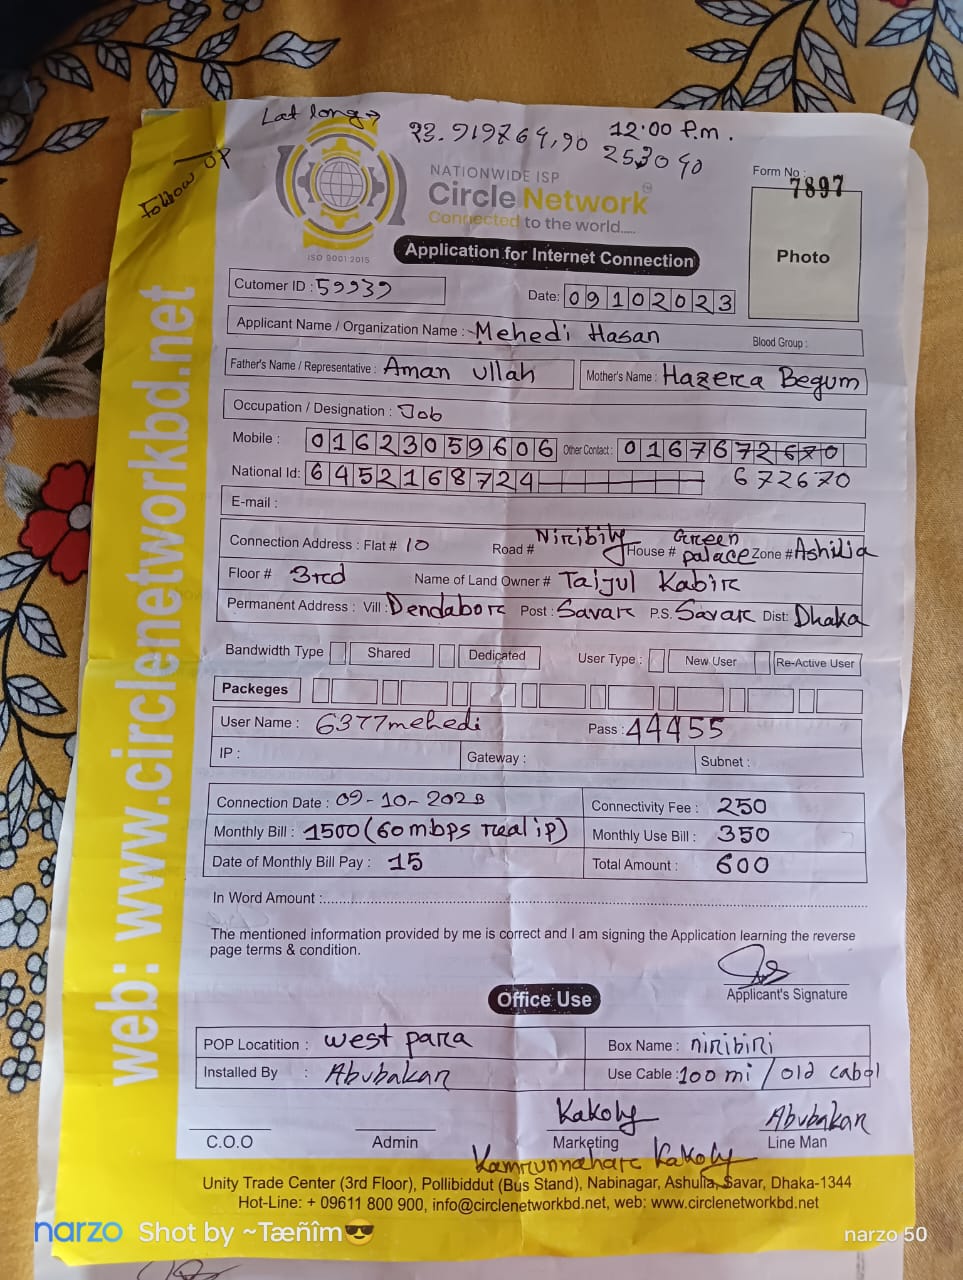 Lat long→
23.919764,90 12:00 P.m.
253040
Follow up
NATIONWIDE ISP
Circle Network
Connected to the world.....
ISO 9001:2015
Form No :
7897
Photo
Application for Internet Connection
Cutomer ID : 59939
Date: 09102023
Applicant Name / Organization Name :- Mehedi Hasan Blood Group :
Father's Name / Representative : Aman ullah Mother's Name : Hazera Begum
Occupation / Designation : Job
Mobile : 01623059606 Other Contact : 0167672670
National Id: 6452168724 672670
E-mail :
Connection Address : Flat # 10 Road # Niribily House # Green palace Zone # Ashilia
Floor # 3rd Name of Land Owner # Taijul Kabir
Permanent Address : Vill : Dendabor Post : Savar P.S. Savar Dist: Dhaka
Bandwidth Type Shared Dedicated User Type : New User Re-Active User
Packeges
User Name : 6377mehedi Pass : 44455
IP : Gateway : Subnet :
Connection Date : 09-10-2023 Connectivity Fee : 250
Monthly Bill : 1500 (60mbps real ip) Monthly Use Bill : 350
Date of Monthly Bill Pay : 15 Total Amount : 600
In Word Amount :
The mentioned information provided by me is correct and I am signing the Application learning the reverse
page terms & condition.
Applicant's Signature
Office Use
POP Locatition : west para Box Name : niribiri
Installed By : Abubakar Use Cable : 100 mi / old cabol
Kakoly Abubakar
C.O.O Admin Marketing Line Man
Kamrunnahare Kakoly
Unity Trade Center (3rd Floor), Pollibiddut (Bus Stand), Nabinagar, Ashulia, Savar, Dhaka-1344
Hot-Line: + 09611 800 900, info@circlenetworkbd.net, web: www.circlenetworkbd.net
web: www.circlenetworkbd.net
narzo Shot by ~Tæñîm😎 narzo 50